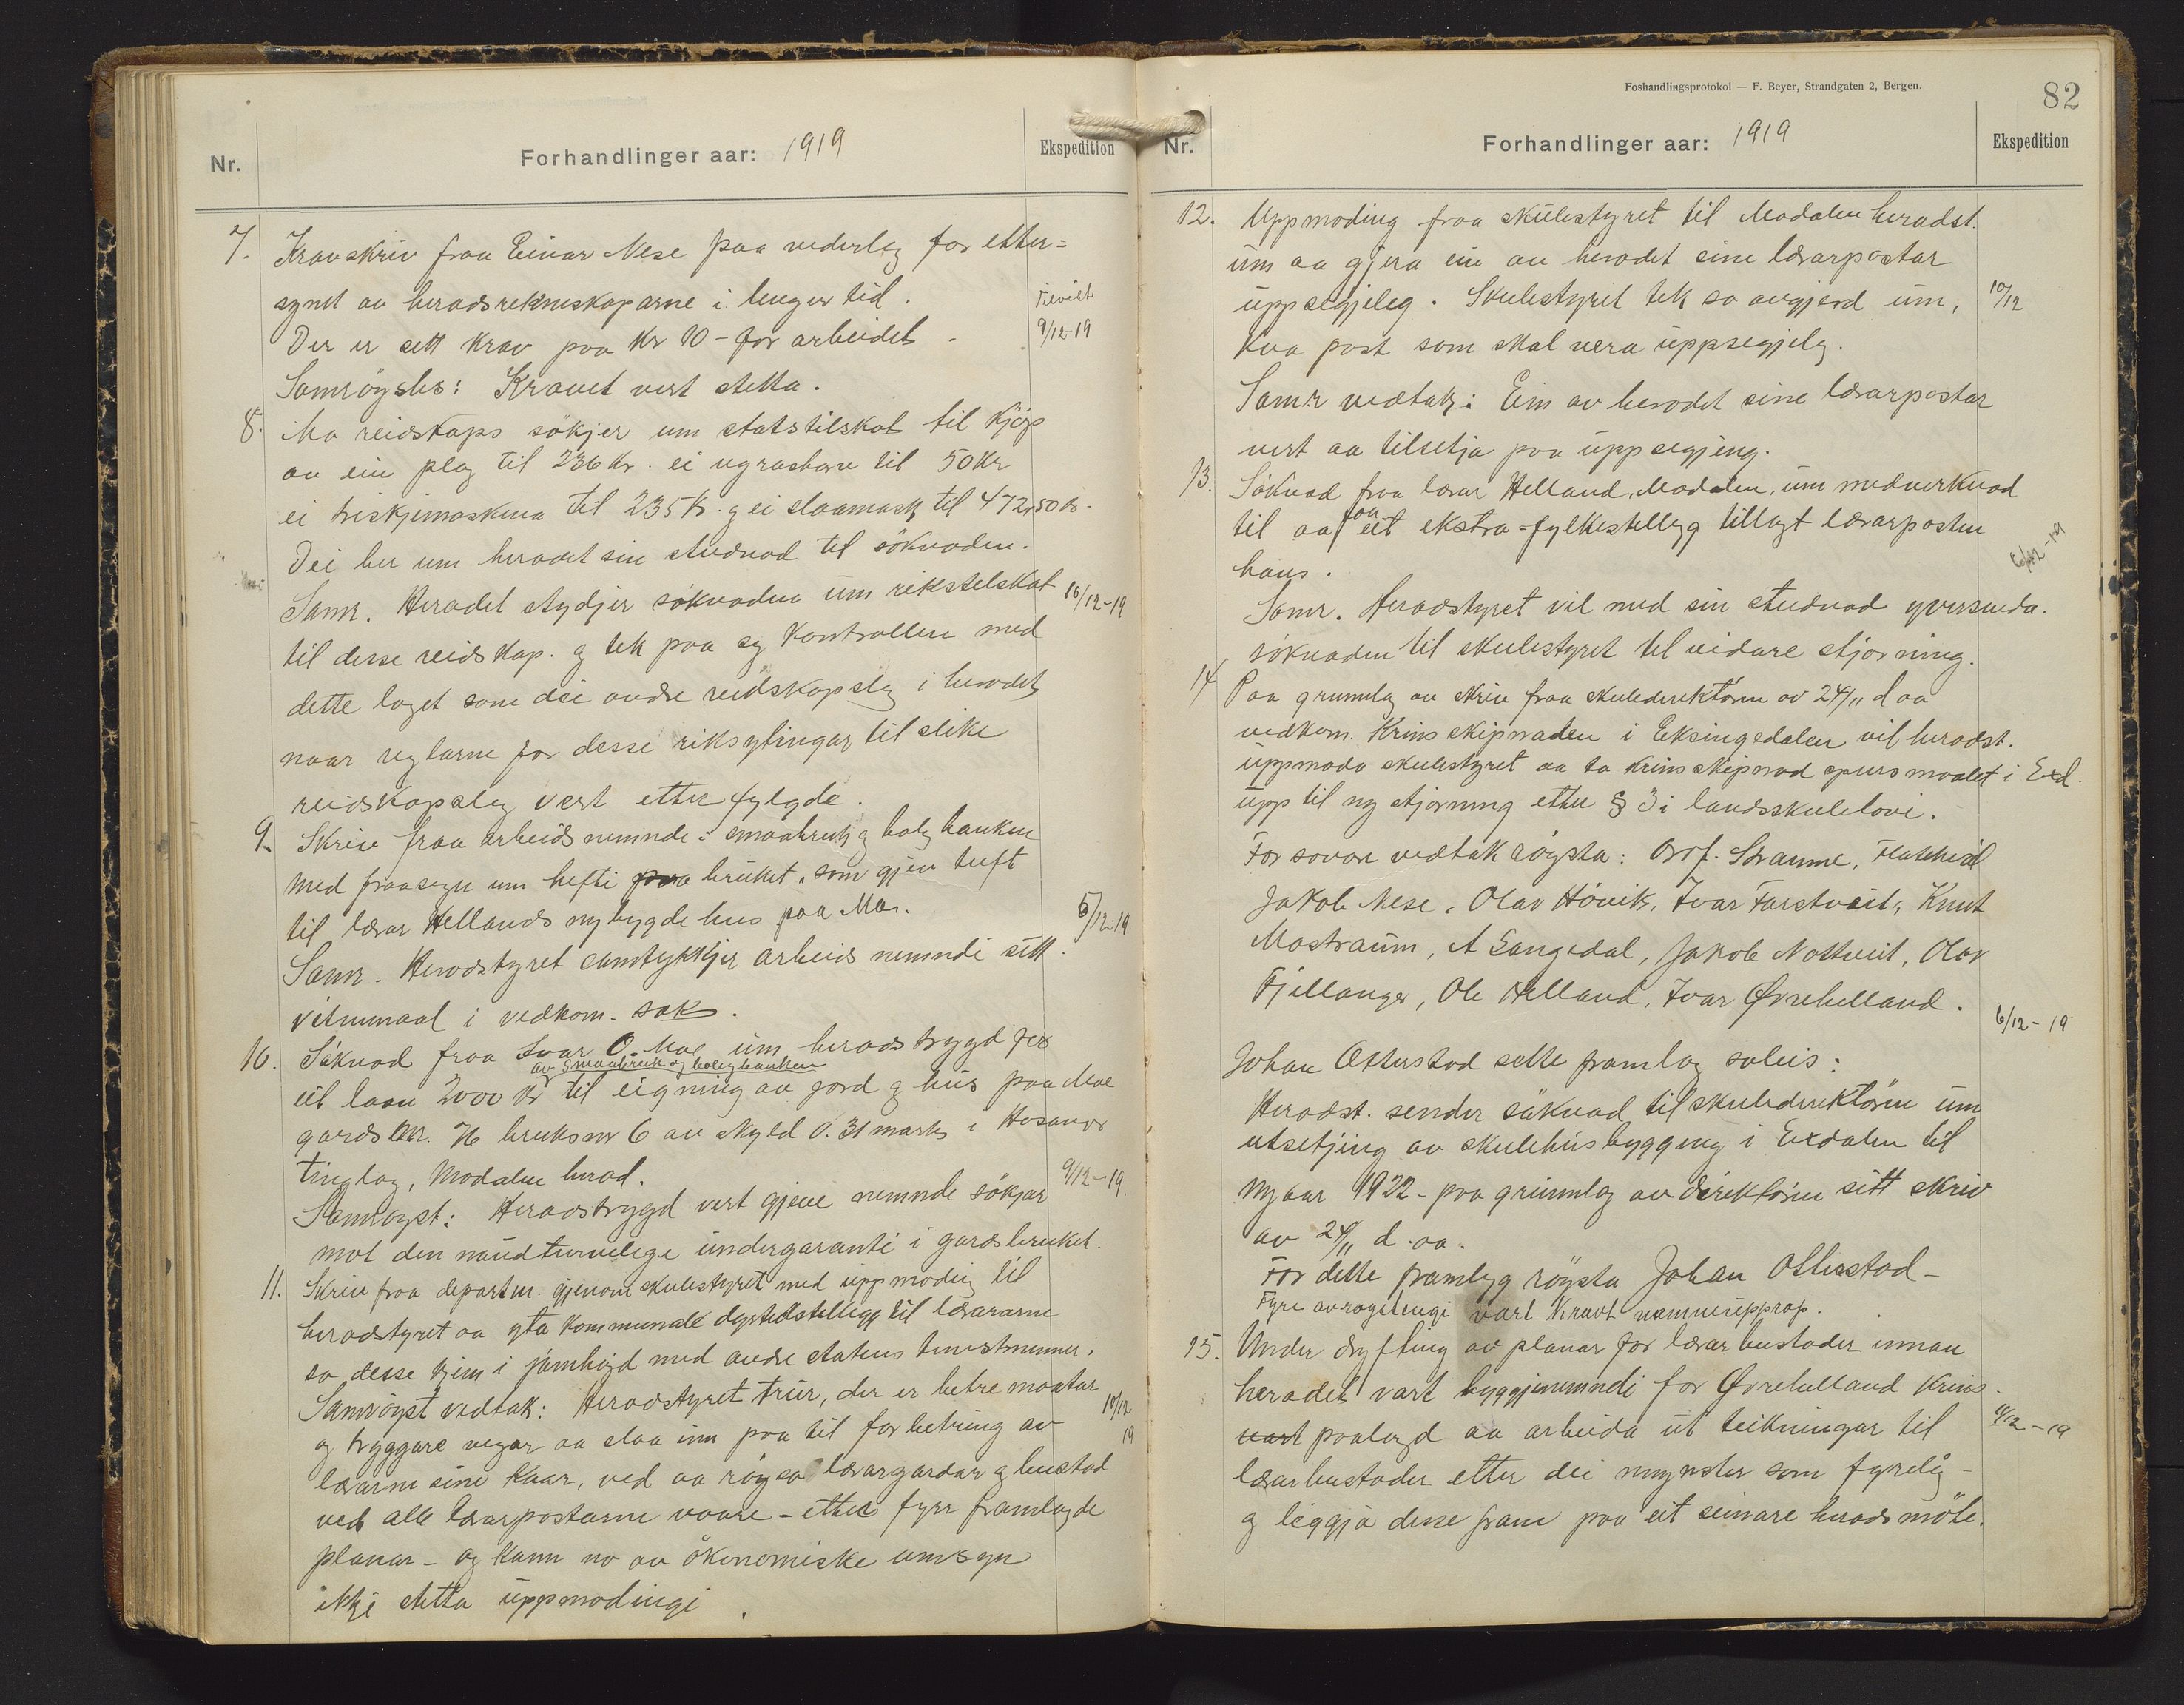 Nr.
Forhandlinger aar: 1919
Ekspedition
7. Kravskriv fraa Einar Nese paa vederlag for etter=
synet av heradsrekneskaparne i lenger tid.
Tilvist
Der er sett krav paa Kr 10 - for arbeidet.
9/12-19
Samrøystes: Kravet vert stetta.
8. Mo reidskaps søkjer um statstilskot til kjøp
av ein plog til 236 Kr. ei ugrasharv til 50 Kr
ei treskjemaskina til 235 Kr. og ei slaamask til 472,50 Kr.
Dei ber um heradet sin studnad til søknaden.
Samr. Heradet stydjer søknaden um rikstelskot
10/12-19
til desse reidskap. og tek paa seg kontrollen med
dette laget som dei andre reidskapslag i heradet,
naar reglarne for desse riksytingar til slike
reidskapslag vert etter fylgde.
9. Skriv fraa arbeidsnemnde i smaabruk og bolig banken
med fraasegn um hefti paa bruket, som gjev tuft
til lærar Hellands nybygde hus paa Mo.
5/12-19.
Samr. Heradstyret samtykkjer arbeids nemndi sitt
vitnemaal i vedkom. sak.
10. Søknad fraa Ivar O. Moe um herads trygd for
av Smaabruk og boligbanken
eit laan 2000 kr til eigning av jord og hus paa Moe
gards nr. 76 bruksnr 6 av skyld 0.31 mark, i Hosanger
tinglag, Modalen herad.
9/12-19.
Samrøyst: Heradstrygd vert gjeve nemnde søkjar
mot den naudturvelege undergaranti i gardsbruket.
11. Skriv fraa departm. gjenom skulestyret med uppmoding til
heradstyret aa yta kommunale dyrtidstillegg til lærarane
so desse kjem i jamhøgd med andre statens tenestmenner.
Samrøyst vedtak: Heradstyret trur, der er betre maatar
10/12
19
og tryggare vegar aa slaa inn paa til forbetring av
lærarne sine kaar, ved aa røysa lærargardar og bustad
ved alle lærarpostarne vaare - etter fyrr framlagde
planar - og kann no av økonomiske umsyn
ikkje stetta uppmodingi.
Foshandlingsprotokol — F. Beyer, Strandgaten 2, Bergen.
82
Nr.
Forhandlinger aar: 1919
Ekspedition
12. Uppmoding fraa skulestyret til Modalen heradst.
um aa gjera ein av heradet sine lærarpostar
uppsegjeleg. Skulestyret tek so avgjerd um,
10/12
kva post som skal vera uppsegjeleg.
Samr vedtak: Ein av heradet sine lærarpostar
vert aa tilsetja paa uppsegjing.
13. Søknad fraa lærar Helland, Modalen, um medverknad
til aa faa eit ekstra-fylkestillegg tillagt lærarposten
6/12-19
hans.
Samr. Heradstyret vil med sin studnad yversenda
søknaden til skulestyret til vidare stjorning.
14 Paa grunnlag av skriv fraa skuledirektøren av 24/11 d aa
vedkom. Krins skipnaden i Eksingedalen vil heradst.
uppmoda skulestyret aa ta krinsskipnad spursmaalet i Exd.
upp til ny stjorning etter § 3 i landsskulelovi.
For sovore vedtak røysta: Brof. Straume, Flatekvål
Jakob Nese, Olav Høvik, Ivar Farstveit, Knut
Mostraum, A Langedal, Jakob Nottveit, Olav
Fjellanger, Ole Helland, Ivar Øvrehelland.
6/12-19
Johan Otterstad sette framlag soleis:
Heradst. sender søknad til skuledirektøren um
utsetjing av skulehusbygging i Exdalen til
nyaar 1922 - paa grunnlag av direktøren sitt skriv
av 24/11 d. aa.
For dette framlegg røysta Johan Otterstad -
Fyre avrøystingi vart kravt namneupprop.
15. Under drøfting av planar for lærarbustader innan
heradet vart byggjenemndi for Øvrehelland krins
vart paalagd aa arbeida ut teikningar til
9/12-19
lærarbustader etter dei mynster som fyrelig -
og leggja desse fram paa eit seinare heradsmøte.